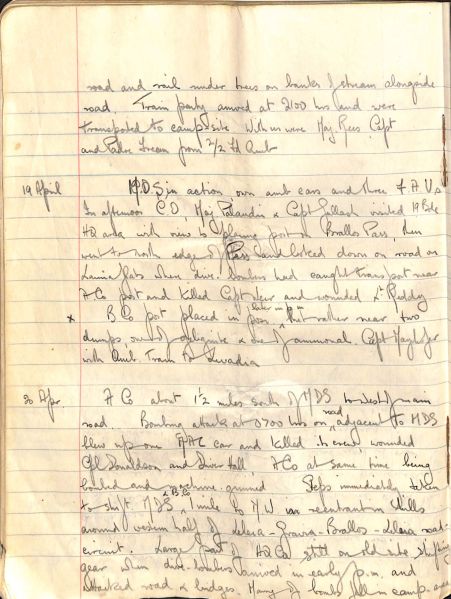 road and rail under trees on banks of stream alongside
road. Train party arrived at 2100 hrs and were
transported to camp site. With us were Maj Rees Capt
and Padre Fream from 2/2 Fd Amb
19 April MDS in action own amb cars and three
In afternoon CO, Maj Palandri & Capt Gallash visited 19 Bde
HQ area with view to planning post at Brallos Pass, then
went to north edge of Pass and looked down on road on
Lamia flats where dive bombers had caught transport near
A Co post and killed Capt and wounded Lt Reddy
* B Co post placed in later in p.m. rather near two
dumps one of gelignite & one of ammonal. Capt
with Amb Train to Levadia
20 Apr. A Co about 1½ miles south of MDS to west of main
road. Bombing attack at 0700 hrs on road adjacent to MDS
blew up one car and killed its crew, wounded
Cpl Donaldson and Driver Hall, A Co at same time being
bombed and machine-gunned Steps immediately taken
to shift MDS & B Co mile to N W in reentrant in hills
around western half of - Gravia - Brallos - road
circuit. Large part of HQ Co still on old site shifting
gear when dive-bombers arrived in early p.m. and
attacked road & bridges. Many of bombs fell in camp area